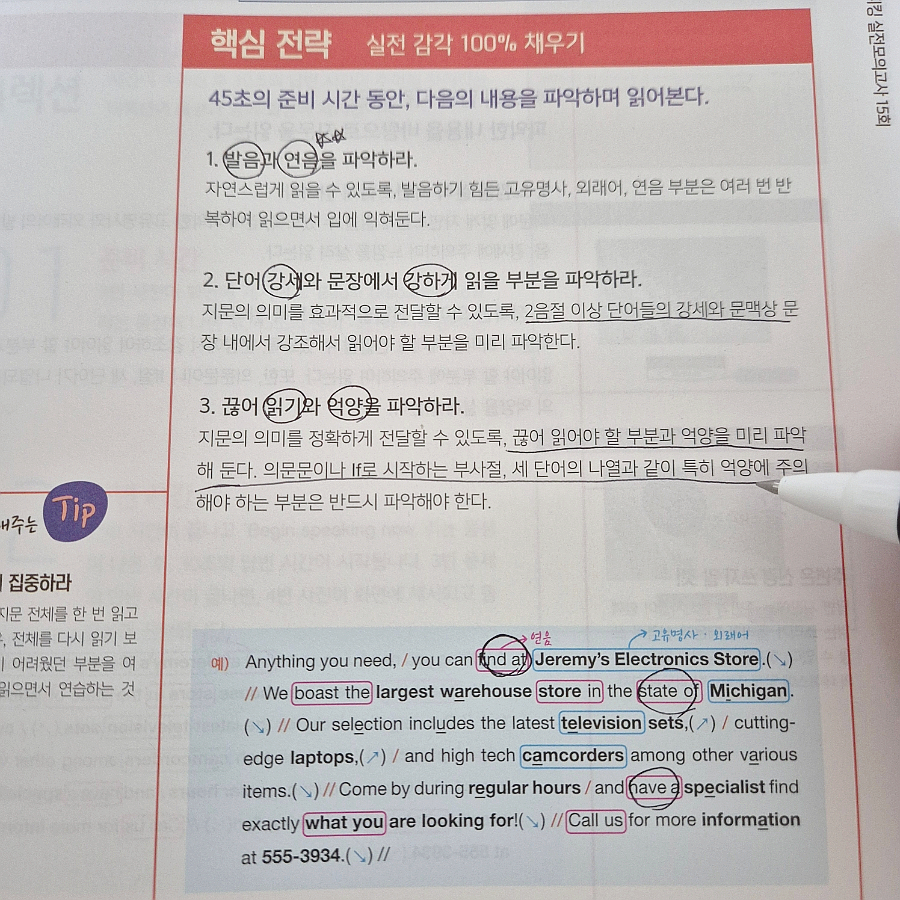 핵심 전략 실전 감각 100% 채우기
45초의 준비 시간 동안, 다음의 내용을 파악하며 읽어본다.
1. 발음과 연음을 파악하라.
자연스럽게 읽을 수 있도록, 발음하기 힘든 고유명사, 외래어, 연음 부분은 여러 번 반
복하여 읽으면서 입에 익혀둔다.
2. 단어 강세와 문장에서 강하게 읽을 부분을 파악하라.
지문의 의미를 효과적으로 전달할 수 있도록, 2음절 이상 단어들의 강세와 문맥상 문
장 내에서 강조해서 읽어야 할 부분을 미리 파악한다.
3. 끊어 읽기와 억양을 파악하라.
지문의 의미를 정확하게 전달할 수 있도록, 끊어 읽어야 할 부분과 억양을 미리 파악
해 둔다. 의문문이나 If로 시작하는 부사절, 세 단어의 나열과 같이 특히 억양에 주의
해야 하는 부분은 반드시 파악해야 한다.
Tip
집중하라
지문 전체를 한 번 읽고
전체를 다시 읽기 보
어려웠던 부분을 여
읽으면서 연습하는 것
연음 고유명사·외래어
예) Anything you need, / you can find at Jeremy's Electronics Store.(↘)
// We boast the largest warehouse store in the state of Michigan.
(↘) // Our selection includes the latest television sets,(↗) / cutting-
edge laptops,(↗) / and high tech camcorders among other various
items.(↘) // Come by during regular hours / and have a specialist find
exactly what you are looking for!(↘) // Call us for more information
at 555-3934.(↘) //
실전모의고사 15회